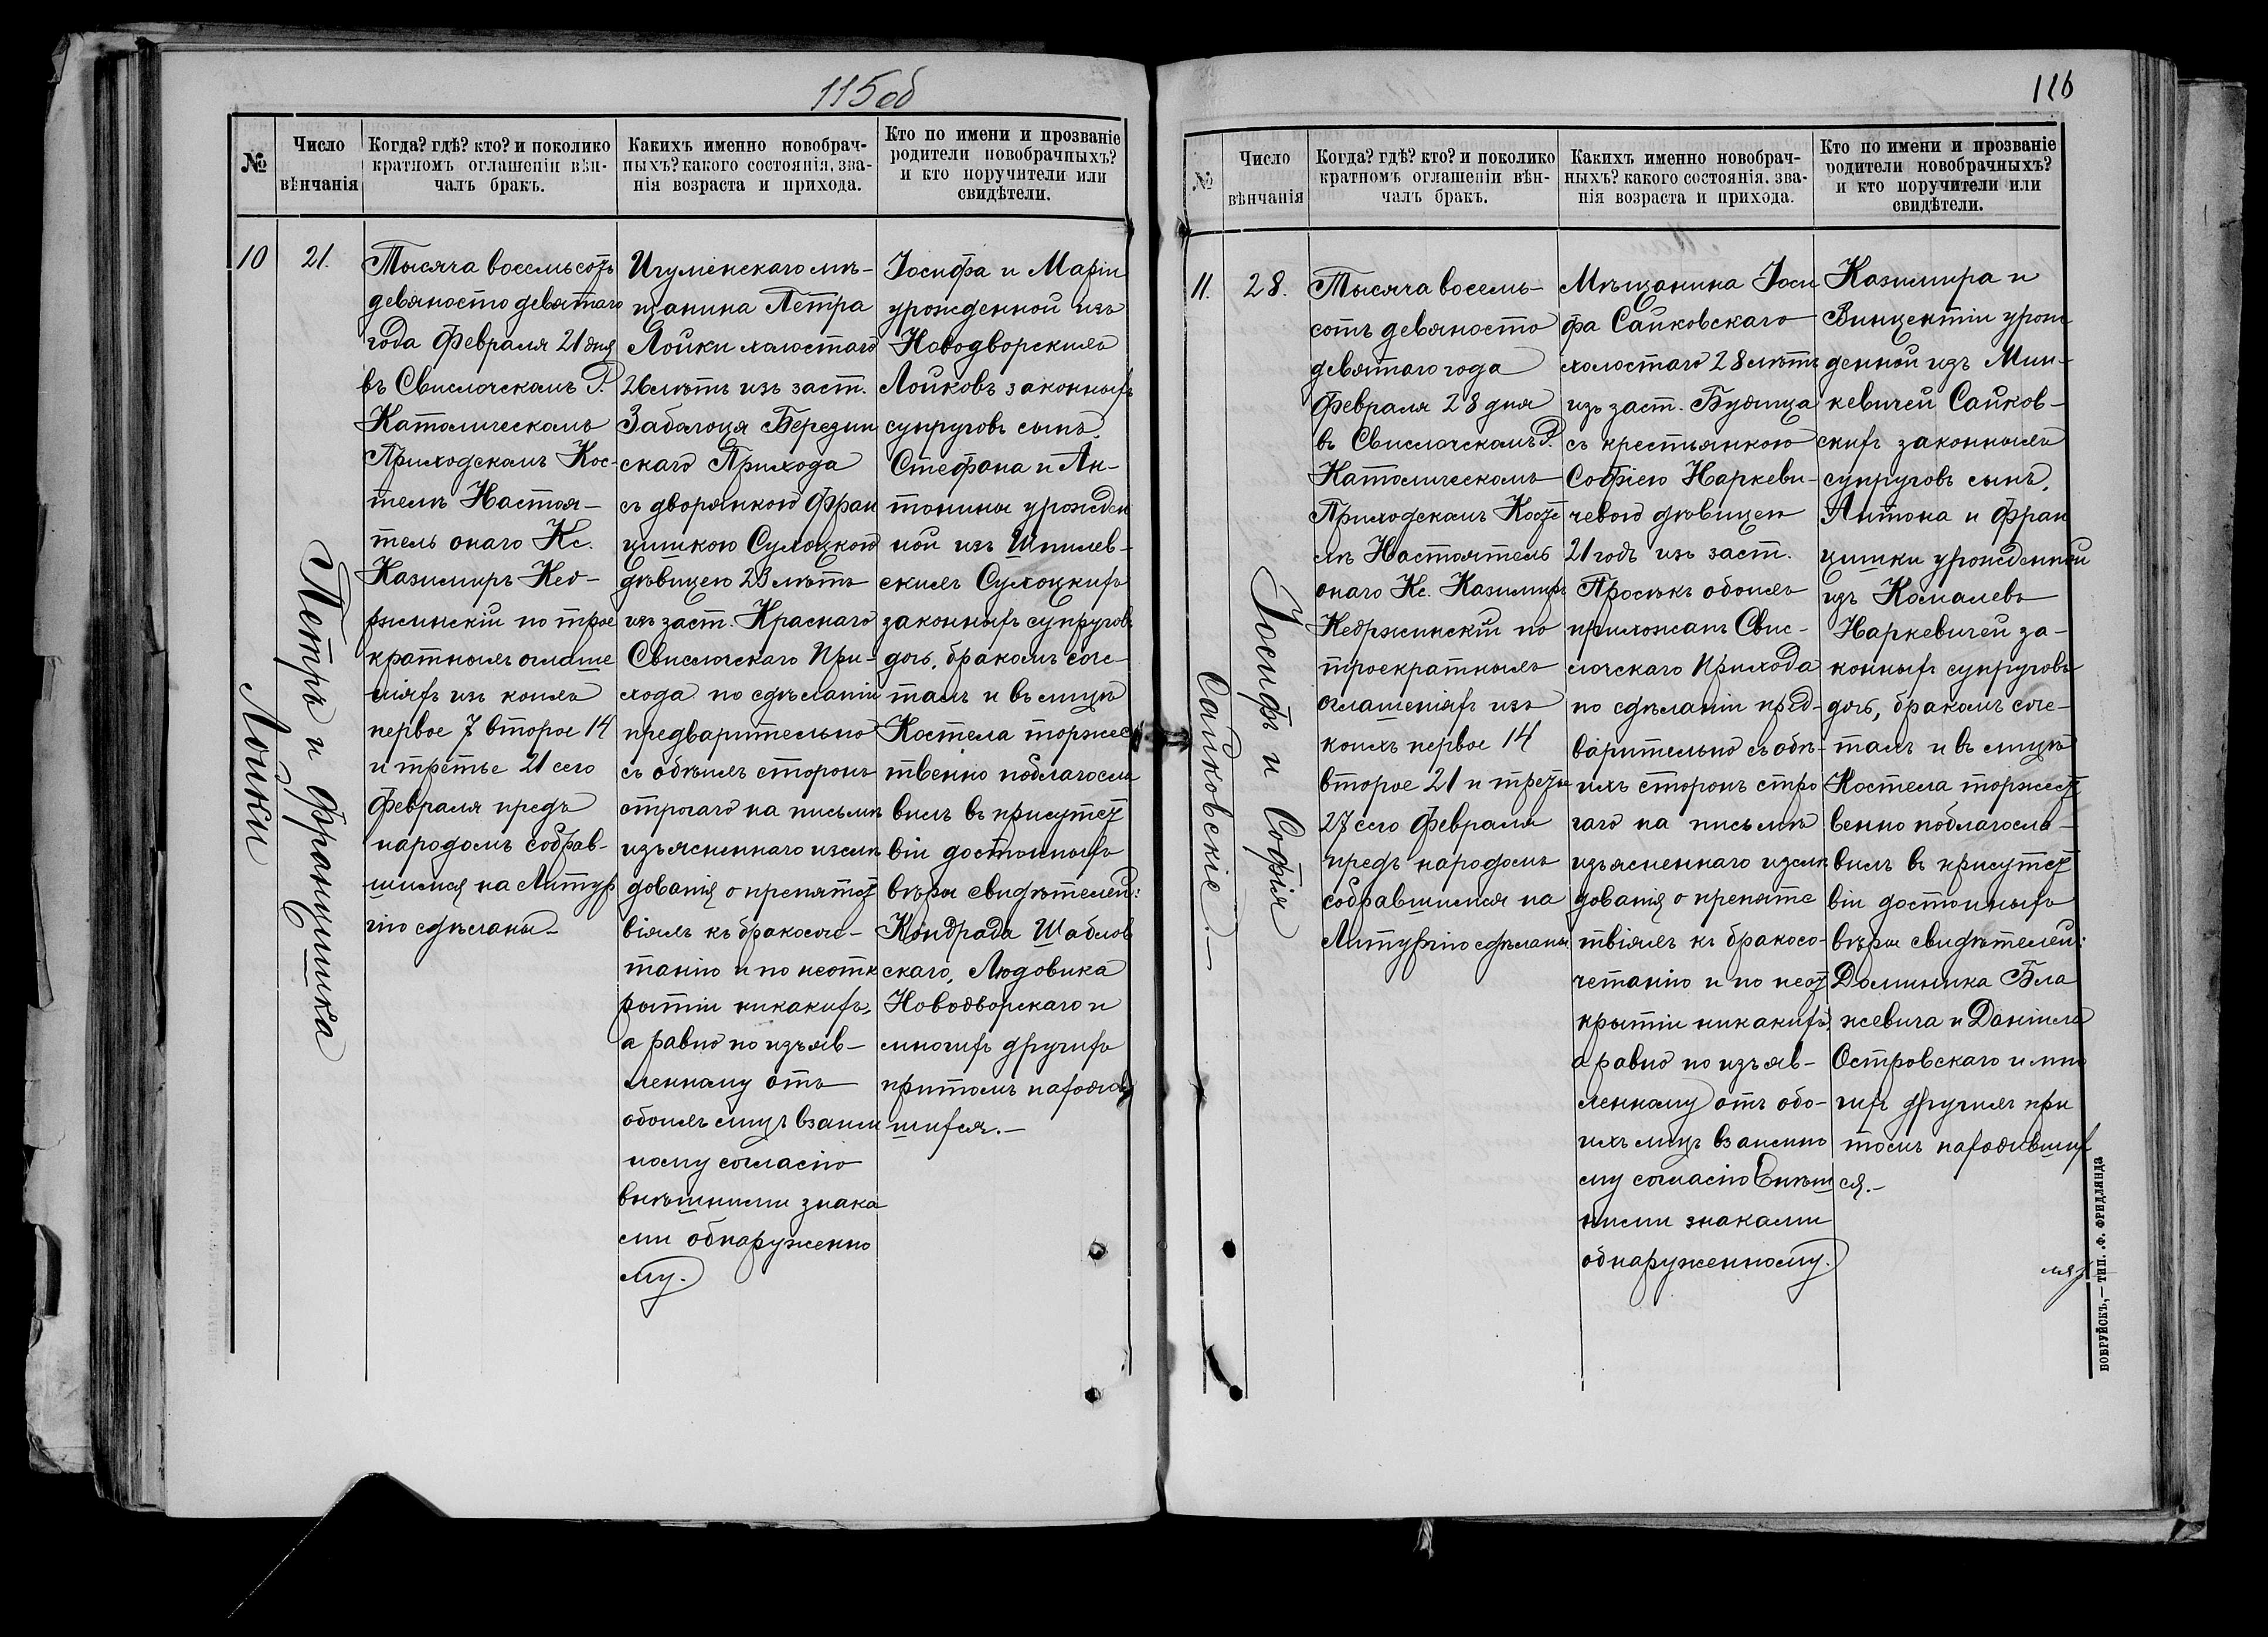 115об
№
Число
вѣнчанія
Когда? гдѣ? кто? и поколико
кратномъ оглашеніи вѣн-
чалъ бракъ.
Какихъ именно новобрач-
ныхъ? какого состоянія, зва-
нія возраста и прихода.
Кто по имени и прозваніе
родители новобрачныхъ?
и кто поручители или
свидѣтели.
10
21.
Петръ и Францишка
Лойки
Тысяча восемьсотъ
девяносто девятаго
года Февраля 21 дня
въ Свислочскомъ Р.
Католическомъ
Приходскомъ Кос-
телѣ Настоя-
тель онаго Кс.
Казимиръ Кед-
ржинскій по трое
кратныхъ оглаше
ніяхъ изъ коихъ
первое 7 второе 14
и третье 21 сего
Февраля предъ
народомъ собрав-
шимся на Литур
гію сдѣланы.
Игуменскаго мѣ-
щанина Петра
Лойки холостаго
26 лѣтъ изъ заст.
Забалоця Березин
скаго Прихода
съ дворянкою Фран
цишкою Сулоцкою
дѣвицею 23 лѣтъ
изъ заст. Краснаго
Свислочскаго При-
хода по сдѣланіи
предварительно
съ обѣихъ сторонъ
строгаго на письмѣ
изъясненнаго изслѣ
дованія о препятст
віяхъ къ бракосоче-
танію и по неотк
рытіи никакихъ,
а равно по изъяв-
ленному отъ
обоихъ лицъ взаим
ному согласію
внѣшними знака
ми обнаруженно
му.
Іосифа и Маріи
урожденной изъ
Новодворскихъ
Лойковъ законныхъ
супруговъ сынъ.
Стефана и Ан-
тонины урожден
ной изъ Шпилев-
скихъ Сулоцкихъ
законныхъ супруговъ
дочь, бракомъ соче-
талъ и въ лицѣ
Костела торжес
твенно поблагосло
вилъ въ присутст
віи достойныхъ
вѣры свидѣтелей:
Кондрада Шаблов
скаго, Людовика
Новодворскаго и
многихъ другихъ
притомъ находив
шихся.
116
№
Число
вѣнчанія
Когда? гдѣ? кто? и поколико
кратномъ оглашеніи вѣн-
чалъ бракъ.
Какихъ именно новобрач-
ныхъ? какого состоянія, зва-
нія возраста и прихода.
Кто по имени и прозваніе
родители новобрачныхъ?
и кто поручители или
свидѣтели.
11.
28.
Іосифъ и Софія
Сайковскіе.
Тысяча восемь-
сотъ девяносто
девятаго года
Февраля 28 дня
въ Свислочскомъ Р.
Католическомъ
Приходскомъ Косте
лѣ Настоятель
онаго Кс. Казимиръ
Кедржинскій по
троекратныхъ
оглашеніяхъ изъ
коихъ первое 14
второе 21 и третье
27 сего Февраля
предъ народомъ
собравшимся на
Литургію сдѣланы
Мѣщанина Іоси
фа Сайковскаго
холостаго 28 лѣтъ
изъ заст. Будница
съ крестьянкою
Софіею Наркеви-
чевою дѣвицею
21 годъ изъ заст.
Просѣкъ обоихъ
прихожанъ Свис-
лочскаго Прихода
по сдѣланіи пред-
варительно съ обѣ-
ихъ сторонъ стро
гаго на письмѣ
изъясненнаго изслѣ
дованія о препятс
твіяхъ къ бракосо-
четанію и по неот
крытіи никакихъ,
а равно по изъяв-
ленному отъ обо-
ихъ лицъ взаимно
му согласію внѣш
ними знаками
обнаруженному.
Казимира и
Винцентіи урож
денной изъ Мин-
кевичей Сайков-
скихъ законныхъ
супруговъ сынъ.
Антона и Фран
цишки урожденной
изъ Комалевъ
Наркевичей за-
конныхъ супруговъ
дочь, бракомъ соче-
талъ и въ лицѣ
Костела торжест
венно поблагосло-
вилъ въ присутст
віи достойныхъ
вѣры свидѣтелей:
Доминика Бла
жевича и Даніила
Островскаго и мно
гихъ другихъ при
томъ находивших
ся.
БОБРУЙСКЪ,—ТИП. Ф. ФРИДЛЯНДА